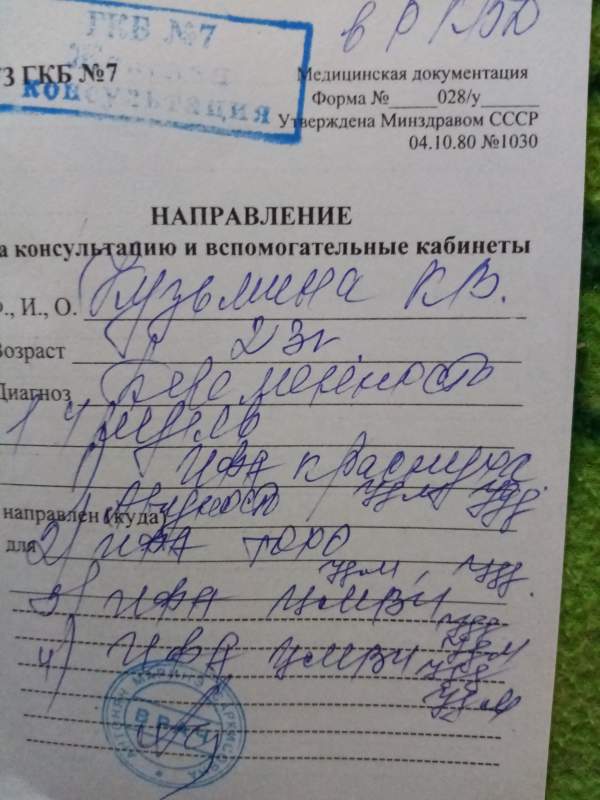 ГКБ №7
Женская
консультация
в РКВД
УЗ ГКБ №7
Медицинская документация
Форма №_____028/у______
Утверждена Минздравом СССР
04.10.80 №1030
НАПРАВЛЕНИЕ
а консультацию и вспомогательные кабинеты
., И., О. Кузьмина К.В.
Возраст 23г
Диагноз Беременность
14 недель
1) ИФА краснуха
направлен (куда)
IgM IgG
для 2) ИФА токсо
IgM, IgG.
3) ИФА ЦМВИ
IgG
IgM
4) ИФА
IgG
IgM
ВРАЧ